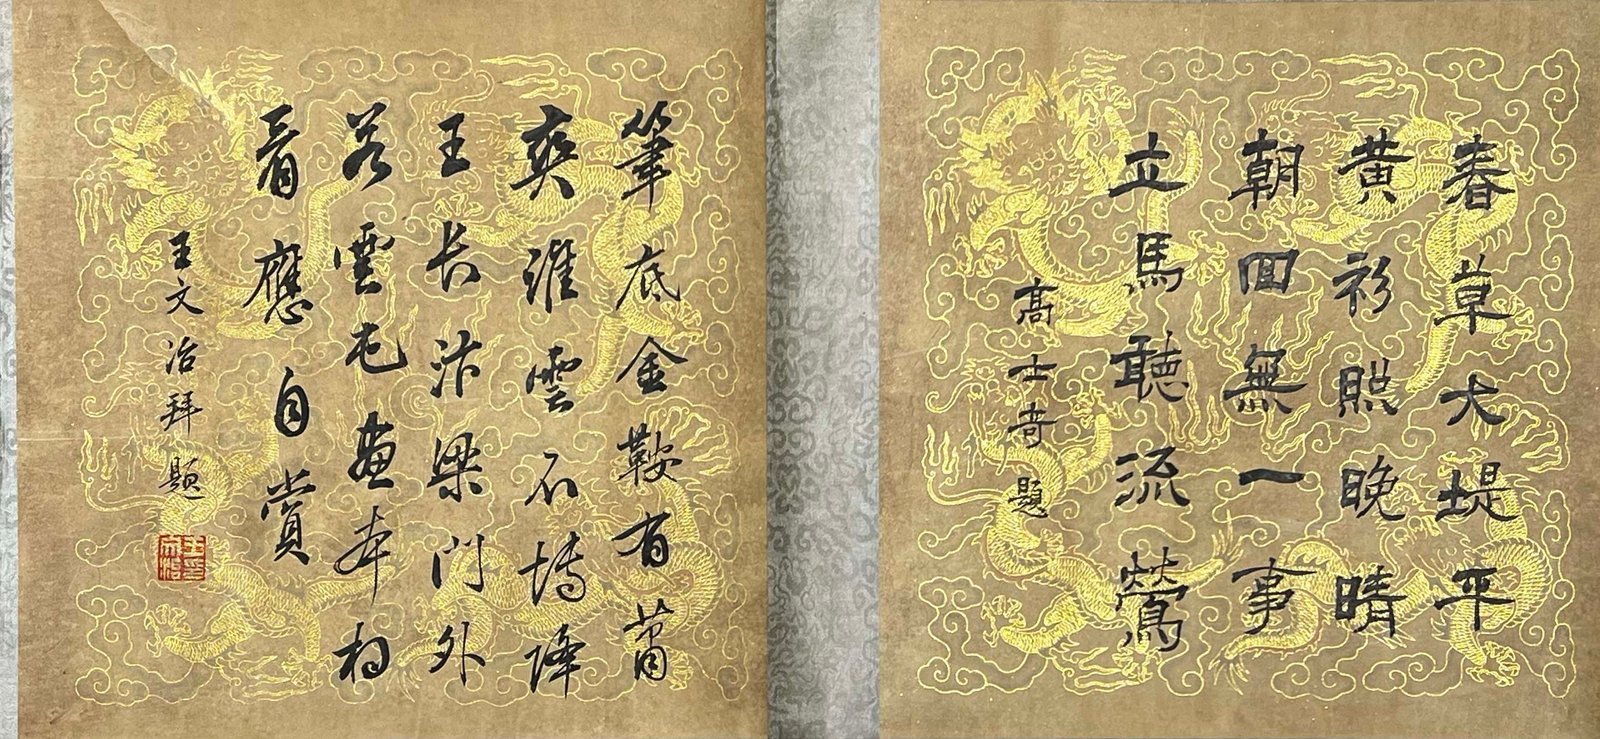 春草大堤平
黄衫照晚晴
朝回無一事
立馬聽流鶯
高士奇題
筆底金鞍有
爽維雲不博降
王長汴梁門外
若雲屯畫本相
看應自賞
王文治拜題